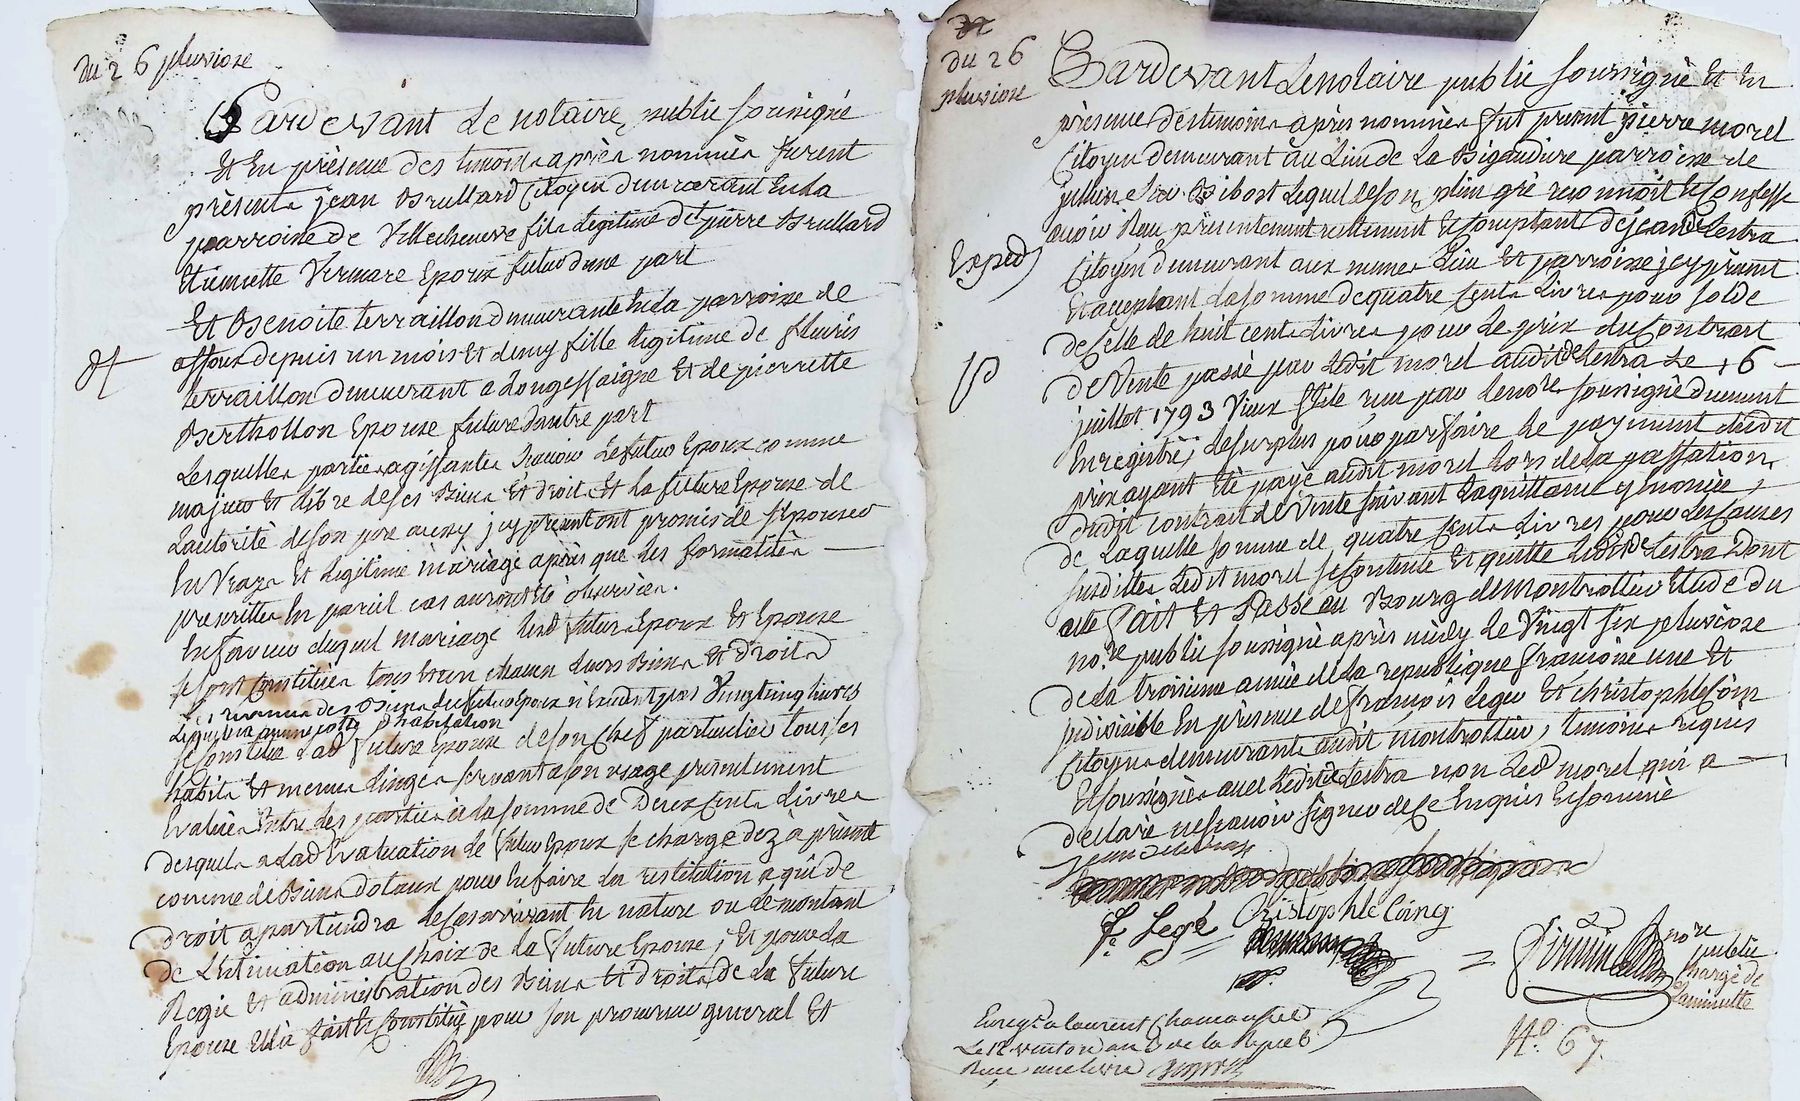 du 26 pluviose
Pardevant Le notaire public soussigné
Et En présence des temoins après nommés furent
présents jean Brullard Citoyen demeurant En la
parroisse de Villecheneve fils Legitime de pierre Brullard
Etiennette Vermare Epoux futur d'une part
Et Benoite terraillon demeurante En la parroisse de
affoux depuis un mois Et demy fille Legitime de fleuris
terraillon demeurant a Longessaigne Et de pierrette
Berthollon Epouse future d'autre part
Lesquelles parties agissantes Scavoir Le futur Epoux comme
majeur Et Libre de ses Biens Et droits Et la future Epouse de
L'autorité de son pere icy present ont promis de s'Epouser
En Vray Et Legitime mariage après que les formalités
prescrittes En pareil cas auront été observées.
En faveur duquel mariage Lesd futurs Epoux Et Epouse
se sont Constitués tous Et un chacun Leurs Biens Et droits
Les revenus des Biens du futur Epoux Vingt cinq livres
habitation
se Constitue Lad future Epouse de son Chef particulier tous ses
habits Et menus Linges servant a son usage presentement
Evalués Entre Les parties a la somme de Deux Cents Livres
desquels a Lad Evaluation Le futur Epoux se charge dez à présent
comme de Biens dotaux pour En faire la restitution a qui de
droit apartiendra Le Cas arrivant En nature ou Le montant
de L'Estimation au Choix de la future Epouse; Et pour la
Regie Et administration des Biens Et droits de la future
Epouse Elle a fait Et Constitué pour son procureur general Et
du 26
pluviose
Pardevant Le notaire public soussigné Et En
présence des temoins après nommés fut present pierre morel
Citoyen demeurant au Lieu de La Bigaudure parroisse de
jullien sur Bibost Lequel de son plein gré reconnoit Et Confesse
avoir Reçu présentement reellement Et Comptant de jean delestra
Exped
Citoyen demeurant aux memes Lieu Et parroisse icy présent
Et acceptant La somme de quatre Cents Livres pour solde
de Celle de huit cents Livres pour Le prix du Contrat
de Vente passé par Ledit morel audit delestra Le 16
juillet 1793 Vieux Stile reçu par Le no.re soussigné duement
Enregistré; Le surplus pour parfaire Le payement dudit
prix ayant été payé audit morel Lors de la passation
dudit contrat de Vente suivant La quittance y Enoncée,
de Laquelle somme de quatre Cents Livres pour Les Causes
susdittes Ledit morel se Contente Et quitte Ledit delestra Dont
acte Fait Et Passé au Bourg de Montrottier Etude du
no.re public soussigné après midy Le Vingt six pluviose
de La troisieme année de La republique françoise une Et
indivisible En présence de françois Legé Et Christophle Coing
Citoyens demeurants audit montrottier, temoins requis
Et soussignés avec Ledit delestra non Led morel qui a
declaré ne scavoir signer de Ce Enquis Et sommé
jean delestra
f. Legé Christophle Coing
no.re public
Chargé de
La minutte
Enreg.é a laurent Chamousset
Le 12 ventose an 3 de la Repub.
Reçu une livre
N.o 67.